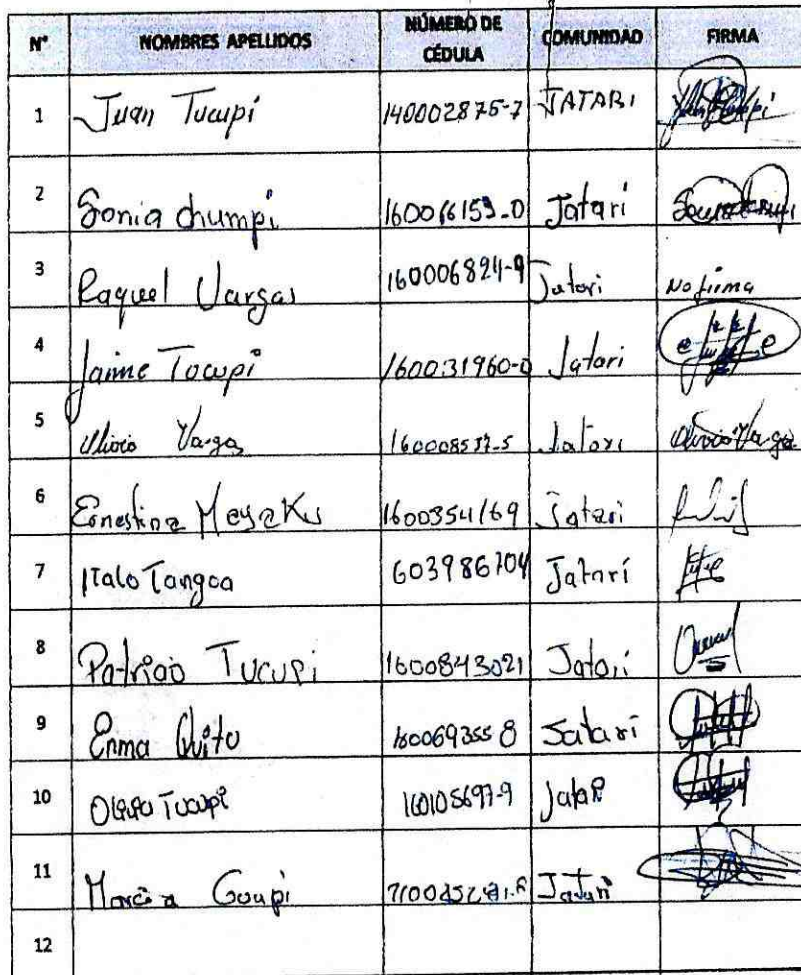 N° NOMBRES APELLIDOS NÚMERO DE CÉDULA COMUNIDAD FIRMA
1 Juan Tucupi 140002875-7 JATARI
2 Sonia chumpi 160066153-0 Jatari
3 Raquel Vargas 160006824-9 Jatari No firma
4 Jaime Tocupi 160031960-0 Jatari
5 Olivio Vargas 160008537-5 Jatari Olivio Vargas
6 Ernestina 1600354169 Jatari
7 Italo Tangoa 603986704 Jatarí
8 Patricio Tucupi 1600843021 Jatari
9 Enma Quito 160069355 8 Jatarí
10 Tucupi 160105697-9 Jatari
11 Jatari
12